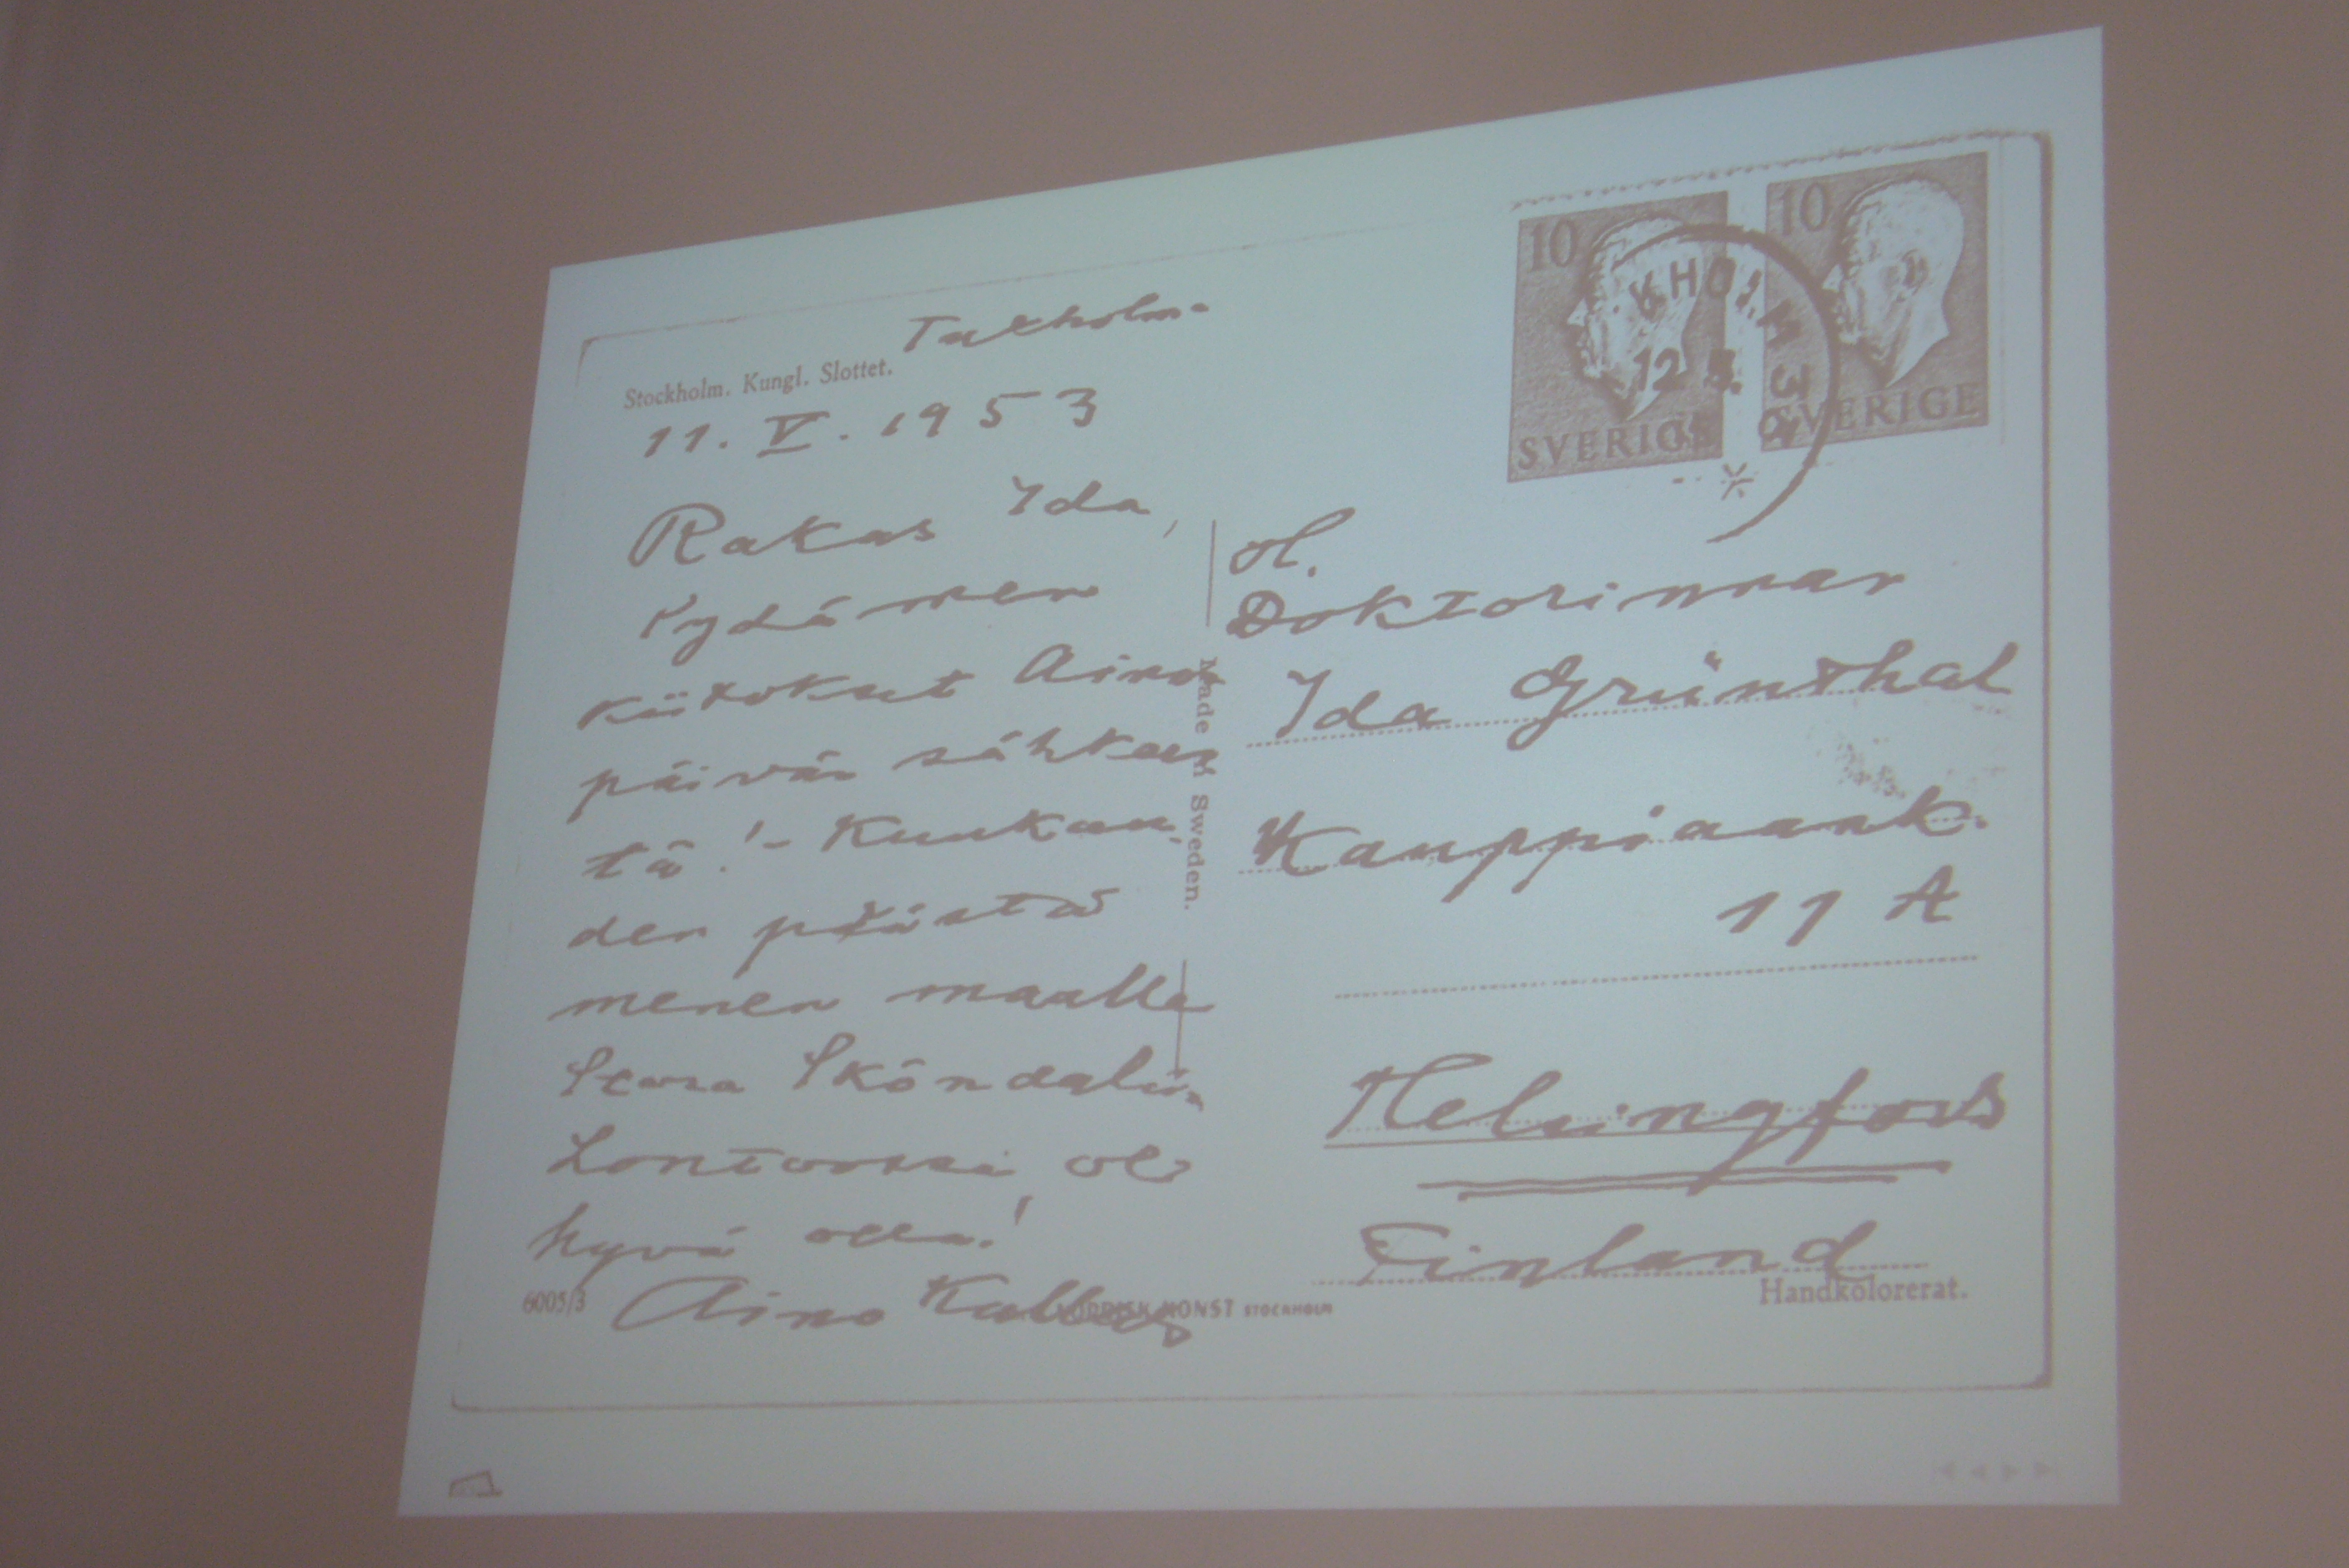 Tukholma
Stockholm. Kungl. Slottet.
11. V. 1953
Rakas Ida,
Sydämen
kiitokset Aino
päivän sähkees
tä! - Kuukau
den päästä
menen maalle
Stora Sköndaliin
Lontoossa oli
hyvä olla!
Aino Kallas
6005/3
NORDISK KONST STOCKHOLM
Made in Sweden.
10
SVERIGE
10
SVERIGE
KHOLM
12 5
Doktorinnan
Ida Grünthal
Kauppiaank.
11 A
Helsingfors
Finland
Handkolorerat.